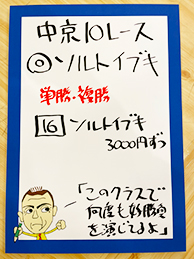 中京10レース
◎ソルトイブキ
単勝・複勝
16 ソルトイブキ
3000円ずつ
「このクラスで
何度も好勝負
を演じてるよ」